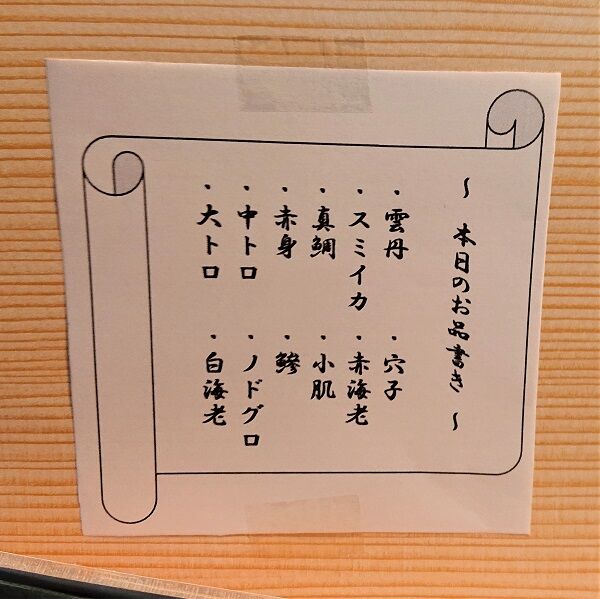 ～ 本日のお品書き ～
・雲丹 ・穴子
・スミイカ ・赤海老
・真鯛 ・小肌
・赤身 ・鰺
・中トロ ・ノドグロ
・大トロ ・白海老